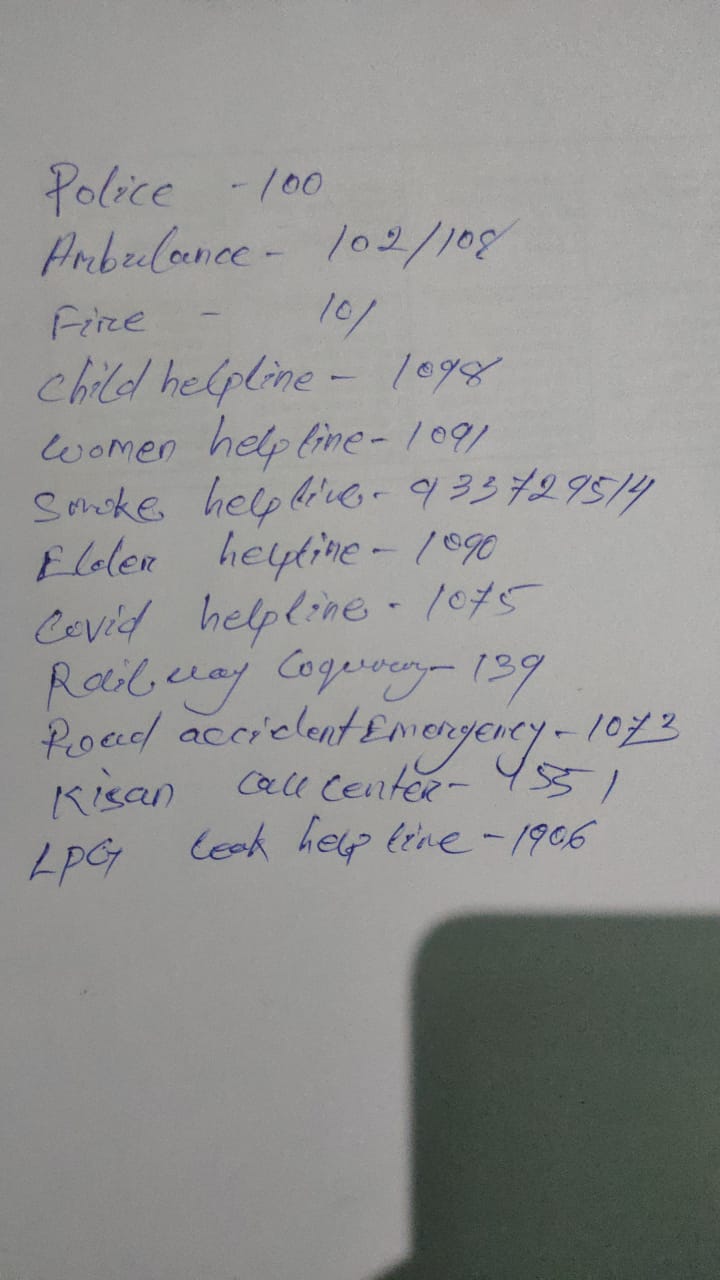 Police - 100
Ambulance - 102/108
Fire - 101
Child helpline - 1098
Women help line - 1091
helpline - 933729514
Elder helpline - 1090
Covid helpline - 1075
Railway - 139
Road accident Emergency - 1073
Kisan Call Center - 1551
LPG leak help line - 1906